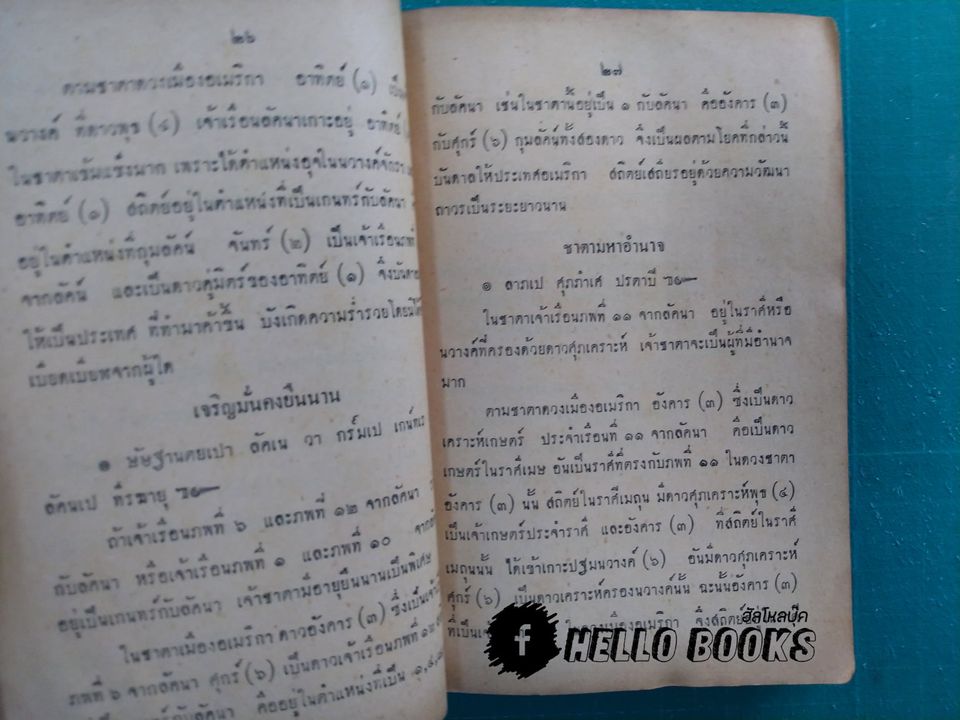 ๒๖
ตามชาตาดวงเมืองอเมริกา อาทิตย์ (๑) เป็น
นวางค์ ที่ดาวพุธ (๔) เจ้าเรือนลัคนาเกาะอยู่ อาทิตย์
ในชาตาเข้มแข็งมาก เพราะได้ตำแหน่งอุจในนวางค์จักร
อาทิตย์ (๑) สถิตย์อยู่ในตำแหน่งที่เป็นเกนทร์กับลัคนา
อยู่ในตำแหน่งที่กุมลัคน์ จันทร์ (๒) เป็นเจ้าเรือนภพที่
จากลัคน์ และเป็นดาวคู่มิตร์ของอาทิตย์ (๑) จึงบันดาล
ให้เป็นประเทศ ที่ทำมาค้าขึ้น บังเกิดความร่ำรวยโดยมิได้
เบียดเบียฬจากผู้ใด
เจริญมั่นคงยืนนาน
๏ ษัษฐานตยเปา ลัคเน วา กร์มเป เกน์ทเร
ลัคนเป ทีรฆายุ
ถ้าเจ้าเรือนภพที่ ๖ และภพที่ ๑๒ จากลัคนา
กับลัคนา หรือเจ้าเรือนภพที่ ๑ และภพที่ ๑๐ จากลั
อยู่เป็นเกนทร์กับลัคนา เจ้าชาตามีอายุยืนนานเป็นพิเศษ
ในชาตาเมืองอเมริกา ดาวอังคาร (๓) ซึ่งเป็นเจ้า
ภพที่ ๖ จากลัคนา ศุกร์ (๖) เป็นดาวเจ้าเรือนภพที่ ๑๒
ศุกร์กับลัคนา คืออยู่ในตำแหน่งที่เป็น ๑,๔,
๒๗
กับลัคนา เช่นในชาตานี้อยู่เป็น ๑ กับลัคนา คืออังคาร (๓)
กับศุกร์ (๖) กุมลัคน์ทั้งสองดาว จึงเป็นผลตามโยคที่กล่าวนี้
บันดาลให้ประเทศอเมริกา สถิตย์เสถียรอยู่ด้วยความวัฒนา
ถาวรเป็นระยะยาวนาน
ชาตามหาอำนาจ
๏ ลาภเป ศุภภำเศ ปรตาปี
ในชาตาเจ้าเรือนภพที่ ๑๑ จากลัคนา อยู่ในราศีหรือ
นวางค์ที่ครองด้วยดาวศุภเคราะห์ เจ้าชาตาจะเป็นผู้ที่มีอำนาจ
มาก
ตามชาตาดวงเมืองอเมริกา อังคาร (๓) ซึ่งเป็นดาว
เคราะห์เกษตร์ ประจำเรือนที่ ๑๑ จากลัคนา คือเป็นดาว
เกษตร์ในราศีเมษ อันเป็นราศีที่ตรงกับภพที่ ๑๑ ในดวงชาตา
อังคาร (๓) นั้น สถิตย์ในราศีเมถุน มีดาวศุภเคราะห์พุธ (๔)
เป็นเจ้าเกษตร์ประจำราศี และอังคาร (๓) ที่สถิตย์ในราศี
เมถุนนั้น ได้เข้าเกาะปฐมนวางค์ (๖) อันมีดาวศุภเคราะห์
ศุกร์ (๖) เป็นดาวเคราะห์ครองนวางค์นั้น ฉะนั้นอังคาร (๓)
ที่เป็นเจ้า ในดวงเมืองอเมริกา จึงสถิตย์อยู่
ฮัลโหลบุ๊ค
f HELLO BOOKS